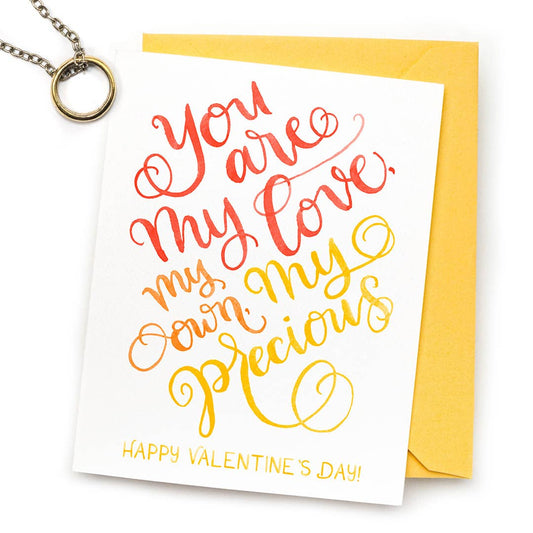 You
are
my love,
my
own, my
precious
HAPPY VALENTINE'S DAY!